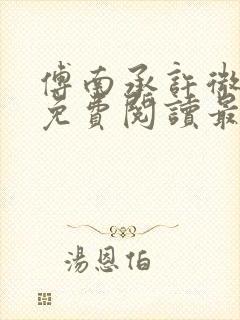 傅南承許微
免費閱讀最
湯恩伯